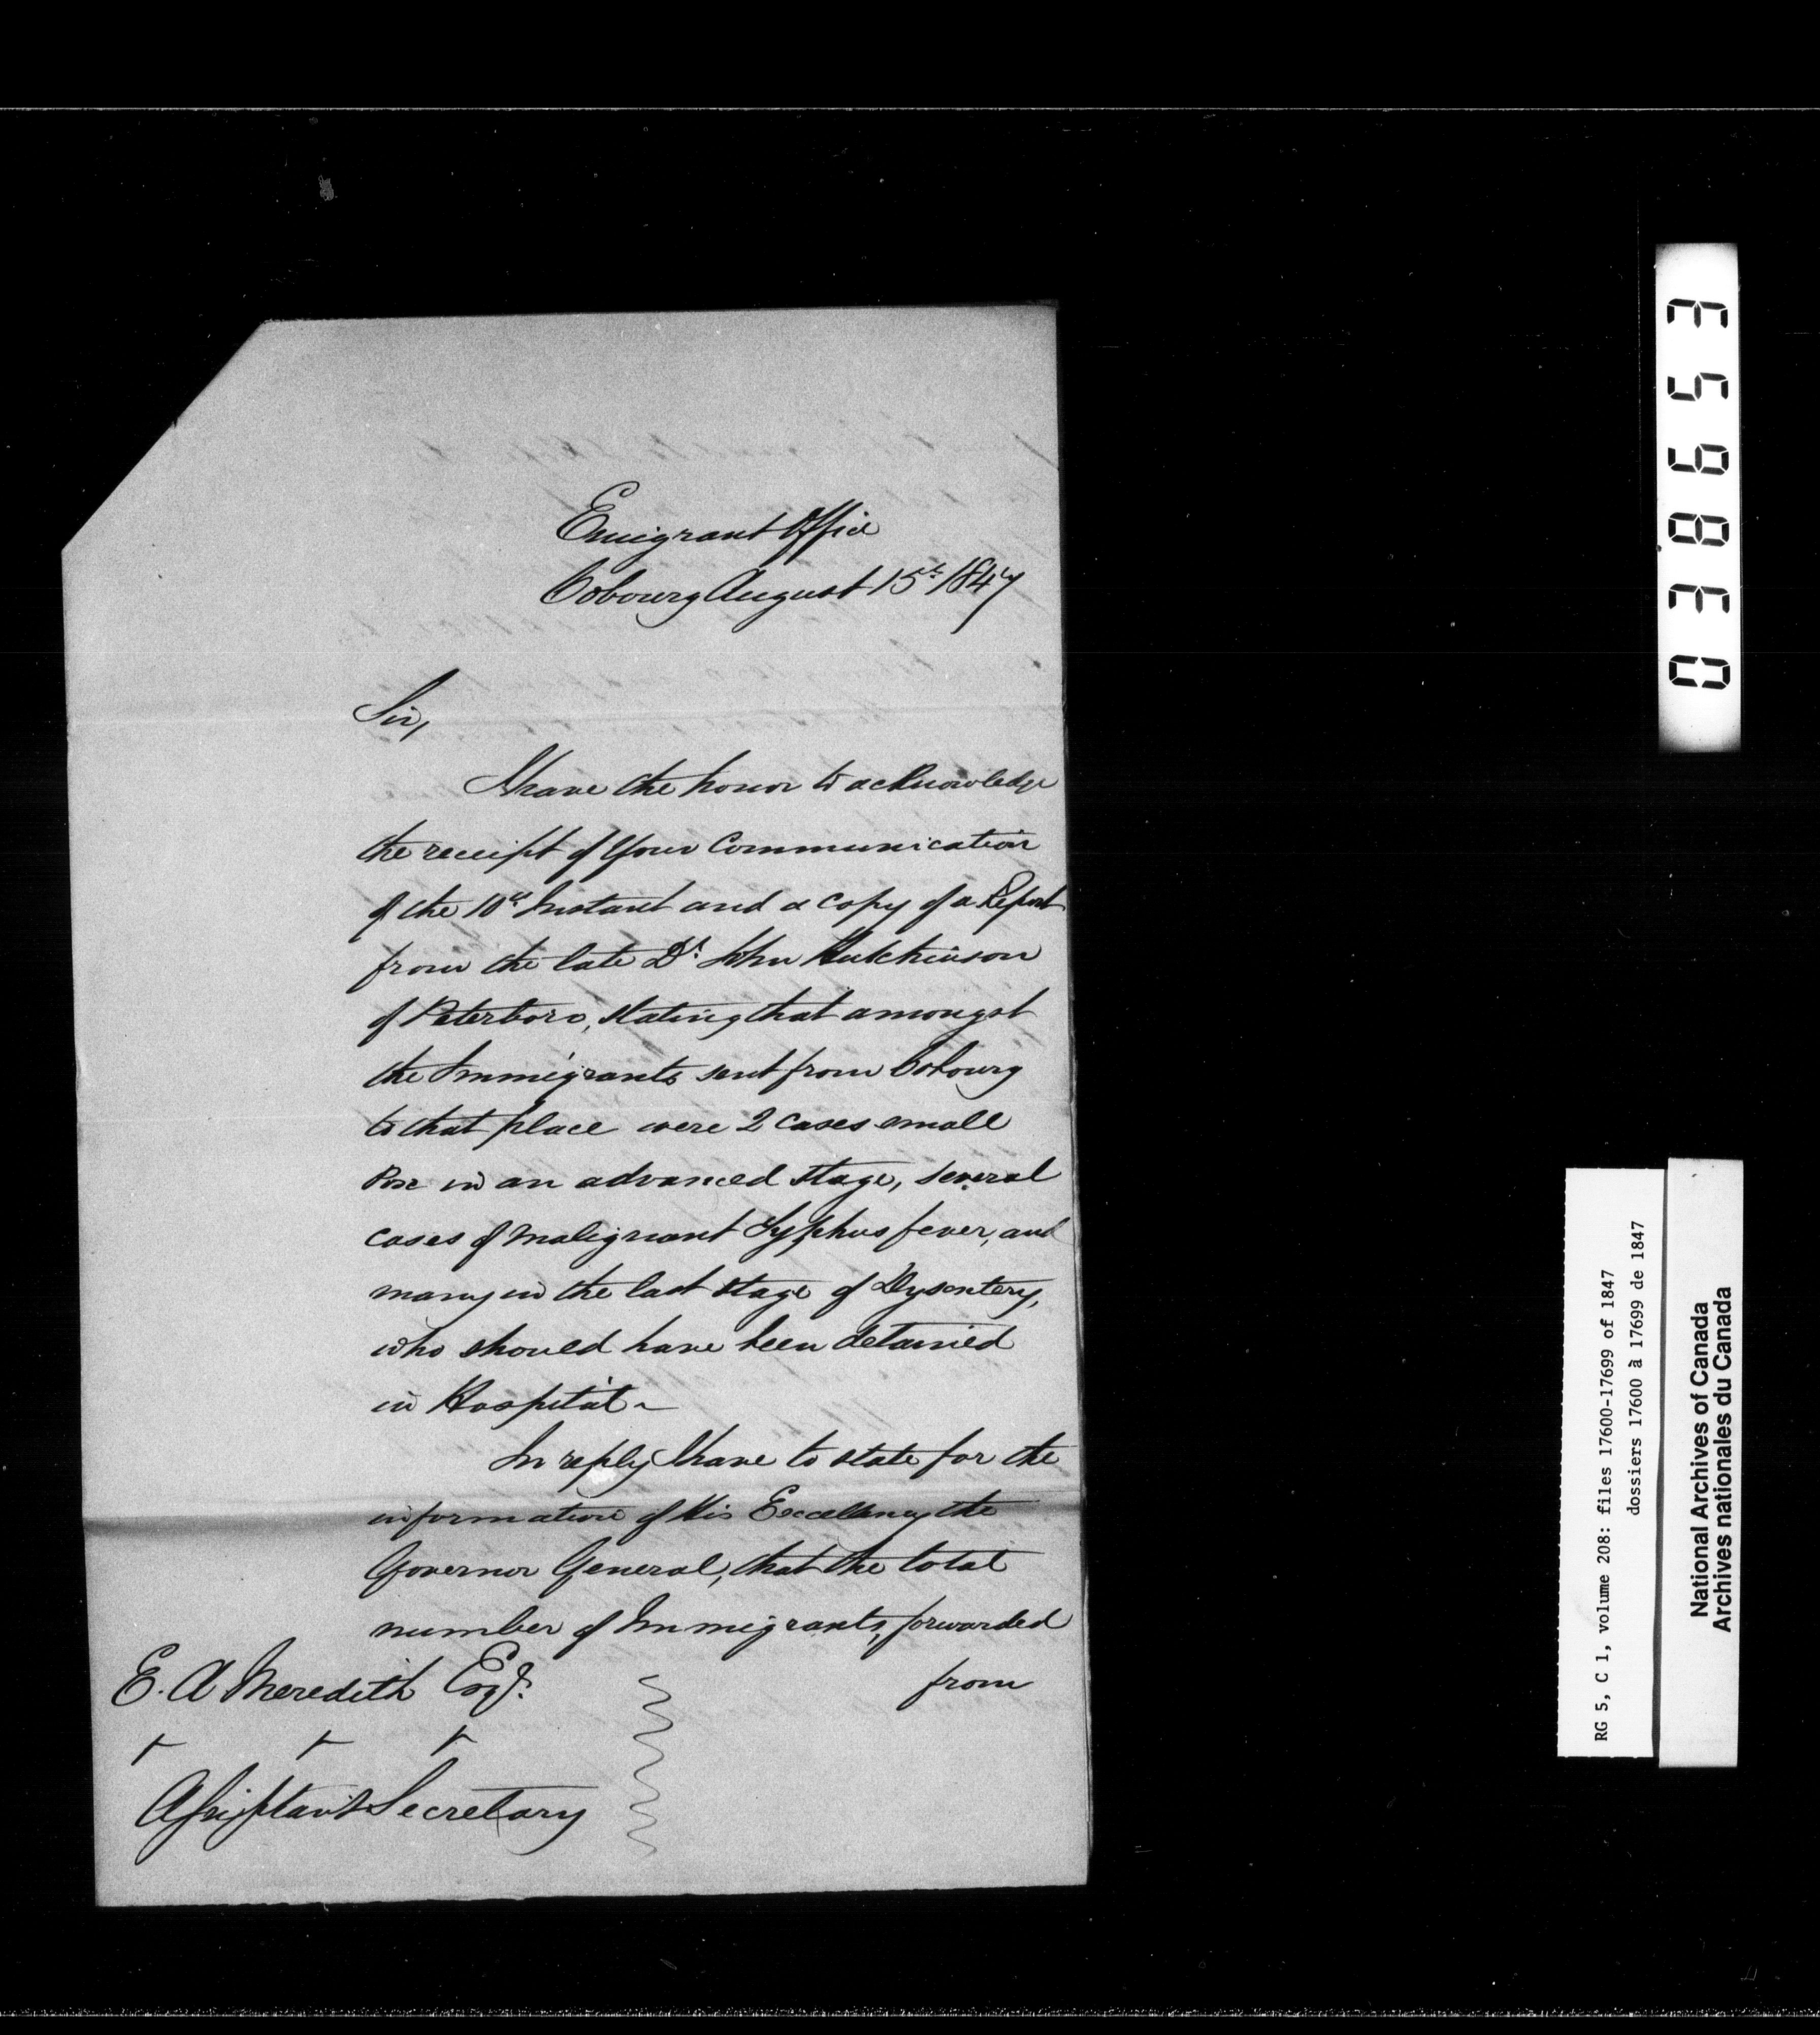 Emigrant Office
Cobourg August 15th 1847
Sir,
I have the honor to acknowledge
the receipt of Your Communication
of the 10th Instant and a copy of a Report
from the late Dr. John Hutchinson
of Peterboro, stating that amongst
the Immigrants sent from Cobourg
to that place were 2 cases small
Pox in an advanced stage, several
cases of malignant Typhus fever, and
many in the last stage of Dysentery,
who should have been detained
in Hospital.~
In reply I have to state for the
information of His Excellency the
Governor General, that the total
number of Immigrants, forwarded
from
E. A Meredith Esqr.
Assistant Secretary
038653
RG 5, C 1, volume 208: files 17600-17699 of 1847
dossiers 17600 à 17699 de 1847
National Archives of Canada
Archives nationales du Canada